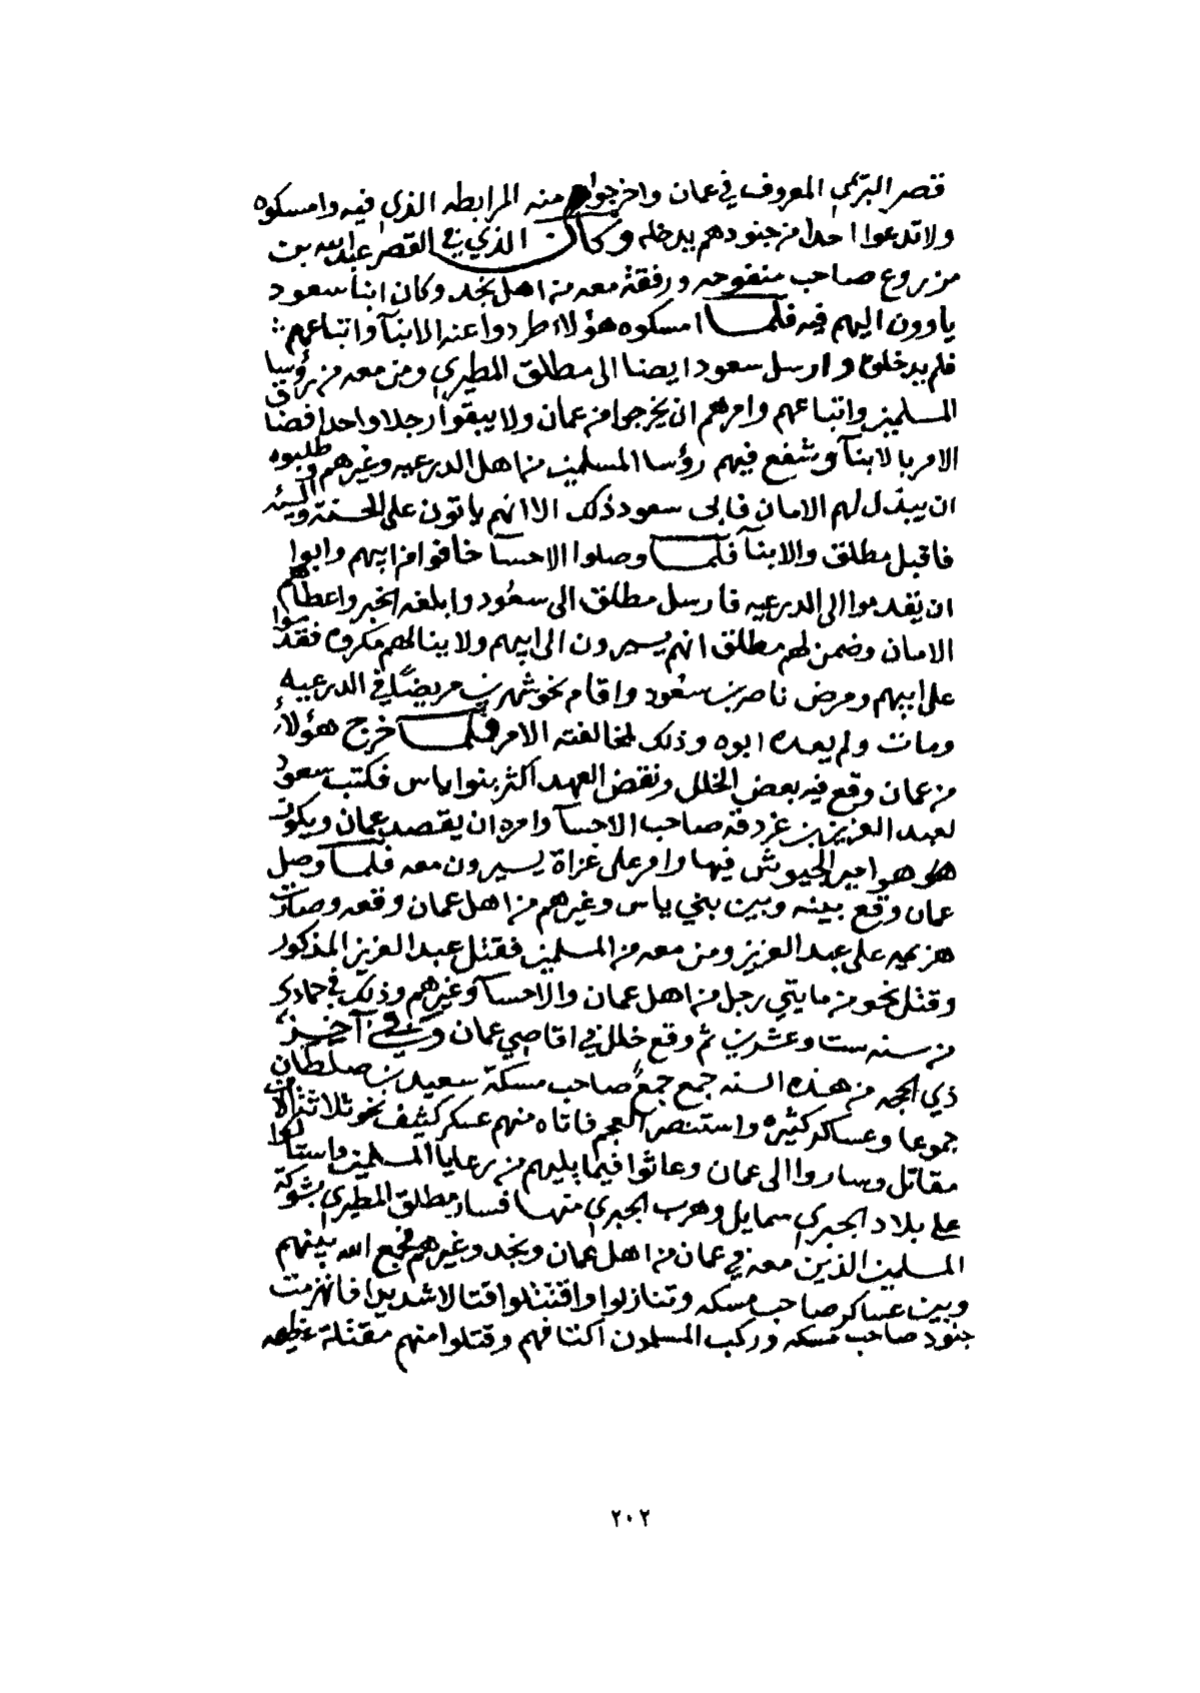 قصر البريمي المعروف في عمان واخرجوا منه المرابطه الذي فيه وامسكوه
ولا تدعوا احدا من جنودهم يدخله وكان الذي في القصر عبدالله بن
مزروع صاحب منفوحه ورفقة معه من اهل نجد وكان ابنا سعود
ياوون اليهم فيه فلما امسكوه هؤلاء طردوا عنه الابنآ واتباعهم
فلم يدخلوه وارسل سعود ايضا الى مطلق المطيري ومن معه من رؤسا
المسلمين واتباعهم وامرهم ان يخرجوا من عمان ولا يبقوا رجلا واحدا فضاق
الامر بالابنآ وشفع فيهم رؤسا المسلمين من اهل الدرعيه وغيرهم وطلبوه
ان يبذل لهم الامان فابى سعود ذلك الا انهم ياتون على الحسنة والسيئه
فاقبل مطلق والابنآ فلما وصلوا الاحسآ خافوا من ابيهم وابوا
ان يقدموا الى الدرعيه فارسل مطلق الى سعود وابلغه الخبر واعطاهم
الامان وضمن لهم مطلق انهم يسيرون الى ابيهم ولا ينالهم مكروه فقدموا
على ابيهم ومرض ناصر بن سعود واقام نحو شهرين مريضًا في الدرعيه
ومات ولم يعده ابوه وذلك لمخالفته الامر فلما خرج هؤلاء
من عمان وقع فيه بعض الخلل ونقض العهد اكثر بنوا ياس فكتب سعود
لعبد العزيز بن غردقه صاحب الاحسآ وامره ان يقصد عمان ويكون
هو امير الجيوش فيها وامر على غزاة يسيرون معه فلما وصل
عمان وقع بينه وبين بني ياس وغيرهم من اهل عمان وقعه وصارت
هزيمه على عبد العزيز ومن معه من المسلمين فقتل عبد العزيز المذكور
وقتل نحو من مايتي رجل من اهل عمان والاحسآ وغيرهم وذلك في جمادى
من سنه ست وعشرين ثم وقع خلل في اقاصي عمان وفي آخر
ذي الحجه من هذه السنه جمع جمع صاحب مسكة سعيد بن صلطان
جموعا وعساكر كثيره واستنصر العجم فاتاه منهم عسكر كثيف نحو ثلاثة الاف
مقاتل وساروا الى عمان وعاثوا فيما يليهم من رعايا المسلمين واستالوا
على بلاد الجبري سمايل وهرب الجبري منها فسار مطلق المطيري بشوكة
المسلمين الذين معه في عمان من اهل عمان ونجد وغيرهم فجمع الله بينهم
وبين عساكر صاحب مسكه وتنازلوا واقتتلوا قتالا شديدا فانهزمت
جنود صاحب مسكه وركب المسلمون اكتافهم وقتلوا منهم مقتلة عظيمه
٢٠٢